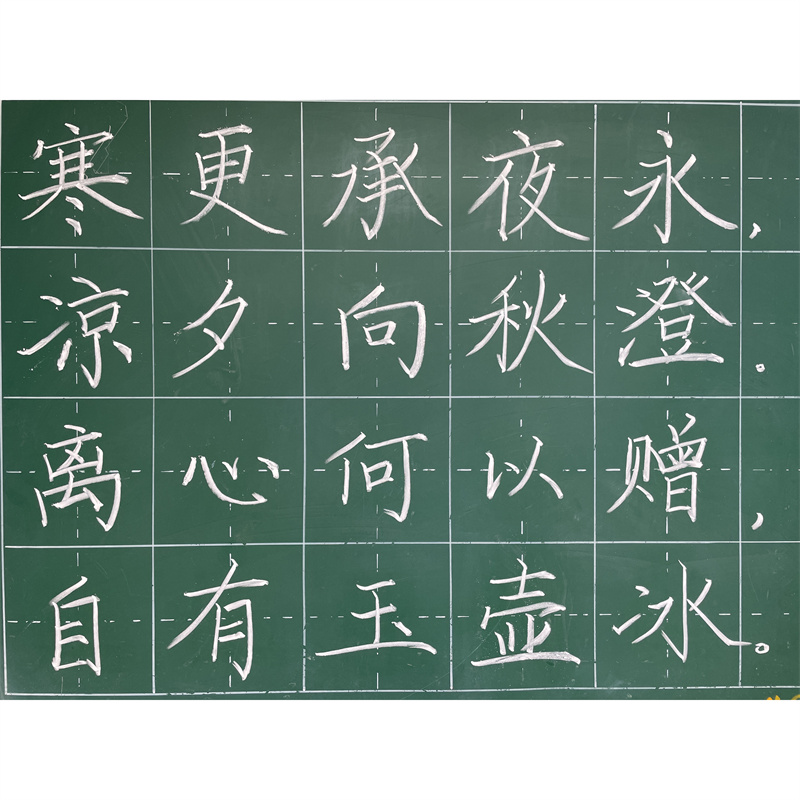 寒更承夜永，
凉夕向秋澄.
离心何以赠，
自有玉壶冰。